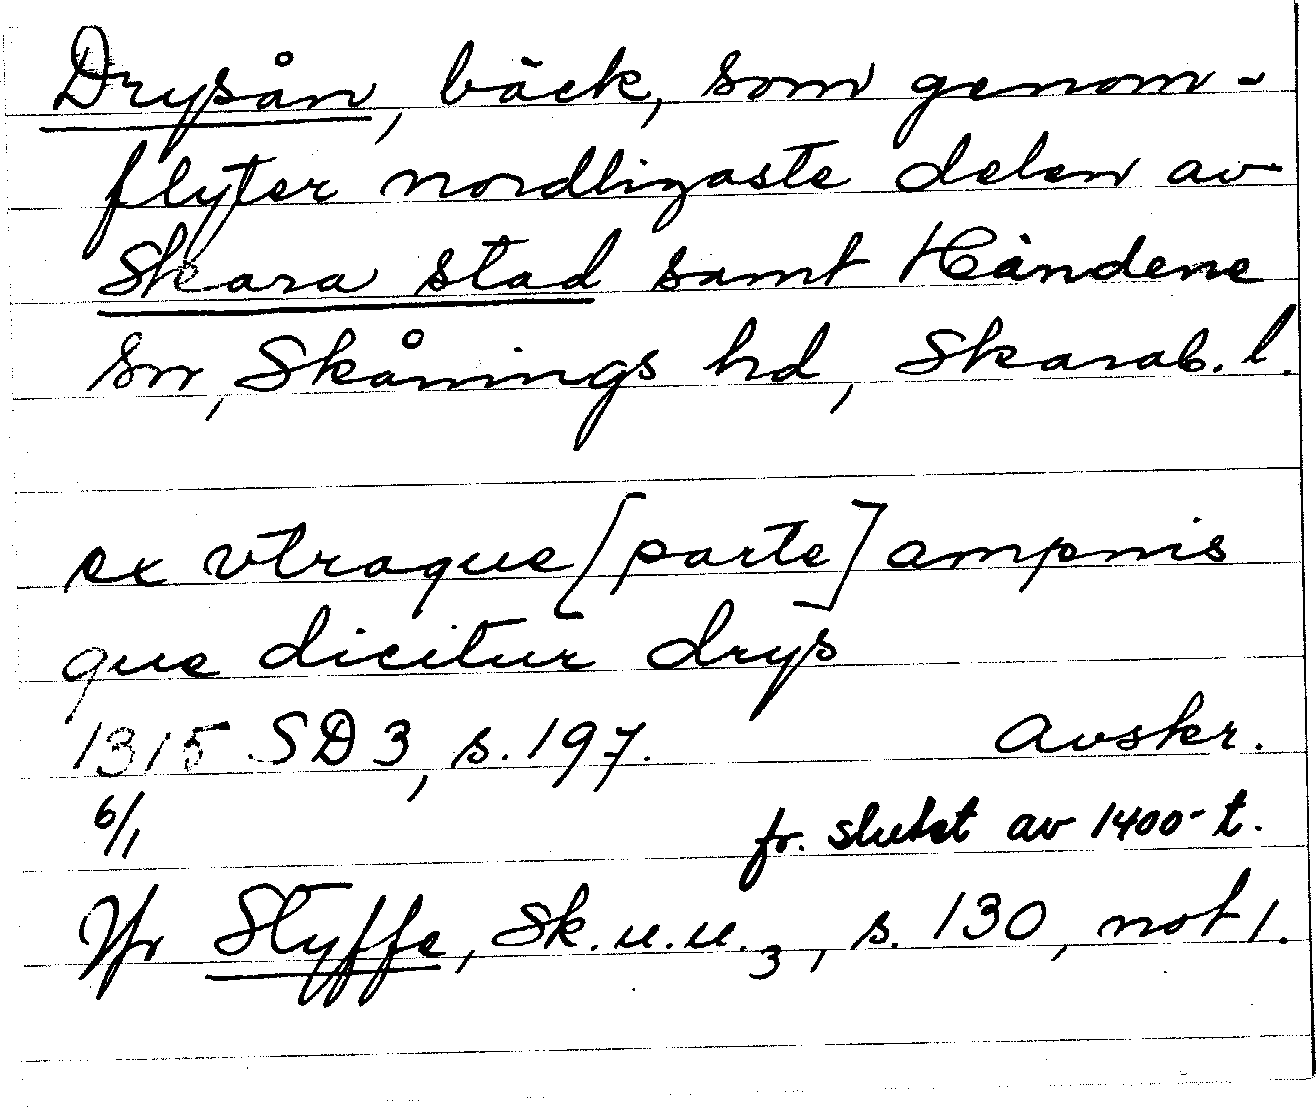 Drysån, bäck, som genom-
flyter nordligaste delen av
Skara stad samt Händene
sn, Skånings hd, Skarab. l.
ex vtraque [parte] ampnis
que dicitur drys
1315 SD 3, s. 197. Avskr.
6/1 fr. slutet av 1400-t.
Jfr Styffe, Sk. u. u. 3, s. 130, not 1.